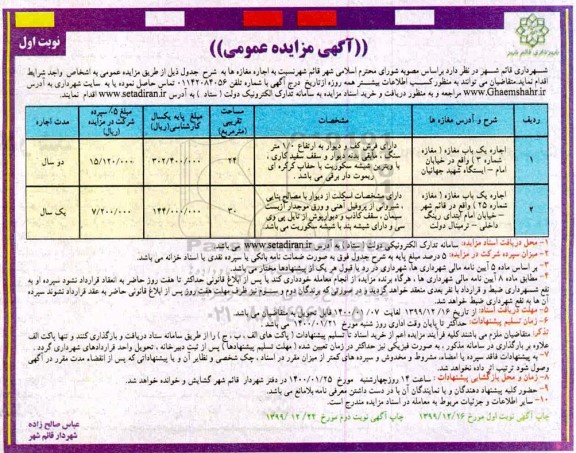 شهرداری قائم شهر
((آگهی مزایده عمومی))
نوبت اول
شهرداری قائم شهر در نظر دارد براساس مصوبه شورای محترم اسلامی شهر قائم شهر نسبت به اجاره مغازه ها به شرح جدول ذیل از طریق مزایده عمومی به اشخاص واجد شرایط
اقدام نماید.متقاضیان می توانند به منظور کسب اطلاعات بیشتر همه روزه ازتاریخ درج آگهی با شماره تلفن ۰۱۱۴۲۰۸۴۰۵۶ تماس حاصل نموده یا به سایت شهرداری به آدرس
www.Ghaemshahr.ir مراجعه و به منظور دریافت و خرید اسناد مزایده به سامانه تدارک الکترونیکی دولت ( ستاد ) به آدرس www.setadiran.ir اقدام نمایند.
ردیف | شرح و آدرس مغازه ها | مشخصات | مساحت تقریبی (مترمربع) | مبلغ پایه یکسال کارشناسی(ریال) | مبلغ ۵٪ سپرده شرکت در مزایده (ریال) | مدت اجاره
۱ | اجاره یک باب مغازه ( مغازه شماره ۳ ) واقع در خیابان امام – ایستگاه شهید جهانیان | دارای فرش کف و دیوار به ارتفاع ۱/۰ متر سنگ ، مابقی بدنه دیوار و سقف سفید کاری ، با ویترین شیشه سکوریت با حفاب کرکره ای ریموت دار برقی می باشد . | ۲۴ | ۳۰۲/۴۰۰/۰۰۰ | ۱۵/۱۲۰/۰۰۰ | دو سال
۲ | اجاره یک باب مغازه ( مغازه شماره ۲۵ ) واقع در قائم شهر – خیابان امام ابتدای رینگ داخلی – ترمینال دولت | دارای مشخصات اسکلت از دیوار با مصالح بنایی ، شیروانی از پروفیل آهنی و ورق موجدار آزبست سیمان ، سقف کاذب و دیوارپوش از تایل پی وی سی و دارای شیشه بند با شیشه سکوریت می باشد | ۳۰ | ۱۴۴/۰۰۰/۰۰۰ | ۷/۲۰۰/۰۰۰ | یک سال
۱- محل دریافت اسناد مزایده: سامانه تدارک الکترونیکی دولت ( ستاد ) به آدرس www.setadiran.ir می باشد.
۲- میزان سپرده شرکت در مزایده: ۵ درصد مبلغ پایه به شرح جدول فوق به صورت ضمانت نامه بانکی یا سپرده نقدی یا اسناد خزانه می باشد.
۳- بر اساس ماده ۵ آیین نامه مالی شهرداری ها، شهرداری در رد یا قبول هر یک از پیشنهادها مختار می باشد.
۴- مطابق ماده ۸ آیین نامه مالی شهرداری ها ، هرگاه برنده مزایده از انجام معامله خودداری کند یا پس از ابلاغ قانونی حداکثر تا هفت روز حاضر به انعقاد قرارداد نشود سپرده او به
نفع شهرداری ضبط و قرارداد با نفر بعدی منعقد خواهد گردید و در صورتی که برندگان دوم و سوم نیز ظرف مهلت هفت روز پس از ابلاغ قانونی حاضر به عقد قرارداد نشوند سپرده
آن ها به نفع شهرداری ضبط خواهد شد.
۵- مهلت دریافت اسناد: از تاریخ ۱۳۹۹/۱۲/۱۶ لغایت ۱۴۰۰/۰۱/۰۷ قابل تحویل به متقاضیان می باشد.
۶- زمان تسلیم پیشنهادات: حداکثر تا پایان وقت اداری روز شنبه مورخ ۱۴۰۰/۰۱/۲۱ می باشد
تذکر: متقاضیان ملزم می باشند کلیه فرآیند مزایده اعم از خرید اسناد تا تسلیم پیشنهادات ( پاکت های الف ، ب ، ج ) را از طریق سامانه ستاد دریافت و بارگذاری کنند و تنها پاکت الف
علاوه بر بارگذاری در سامانه مذکور، به صورت فیزیکی نیز حداکثر در زمان تعیین شده ( مهلت تسلیم پیشنهادها ) پس از ثبت دبیرخانه ، تحویل واحد قراردادهای شهرداری گردد .
۷- به پیشنهادات فاقد سپرده یا امضاء، مشروط و مخدوش و سپرده های کمتر از میزان مقرر در اسناد ، چک شخصی و نظایر آن و یا پیشنهاداتی که پس از انقضاء مدت مقرر در آگهی
وصول شود ترتیب اثر داده نخواهد شد.
۸- زمان و محل بازگشایی پیشنهادات : ساعت ۱۴ روزچهارشنبه مورخ ۱۴۰۰/۰۱/۲۵ در دفتر شهردار قائم شهر گشایش و خوانده خواهد شد.
۹- حضور کلیه پیشنهاد دهندگان و یا نمایندگان آن با در دست داشتن معرفی نامه بلامانع می باشد.
۱۰- سایر اطلاعات و جزئیات مربوط به معامله در اسناد مزایده مندرج است.
چاپ آگهی نوبت اول مورخ ۱۳۹۹/۱۲/۱۶ چاپ آگهی نوبت دوم مورخ ۱۳۹۹/۱۲/۲۲
عباس صالح زاده
شهردار قائم شهر